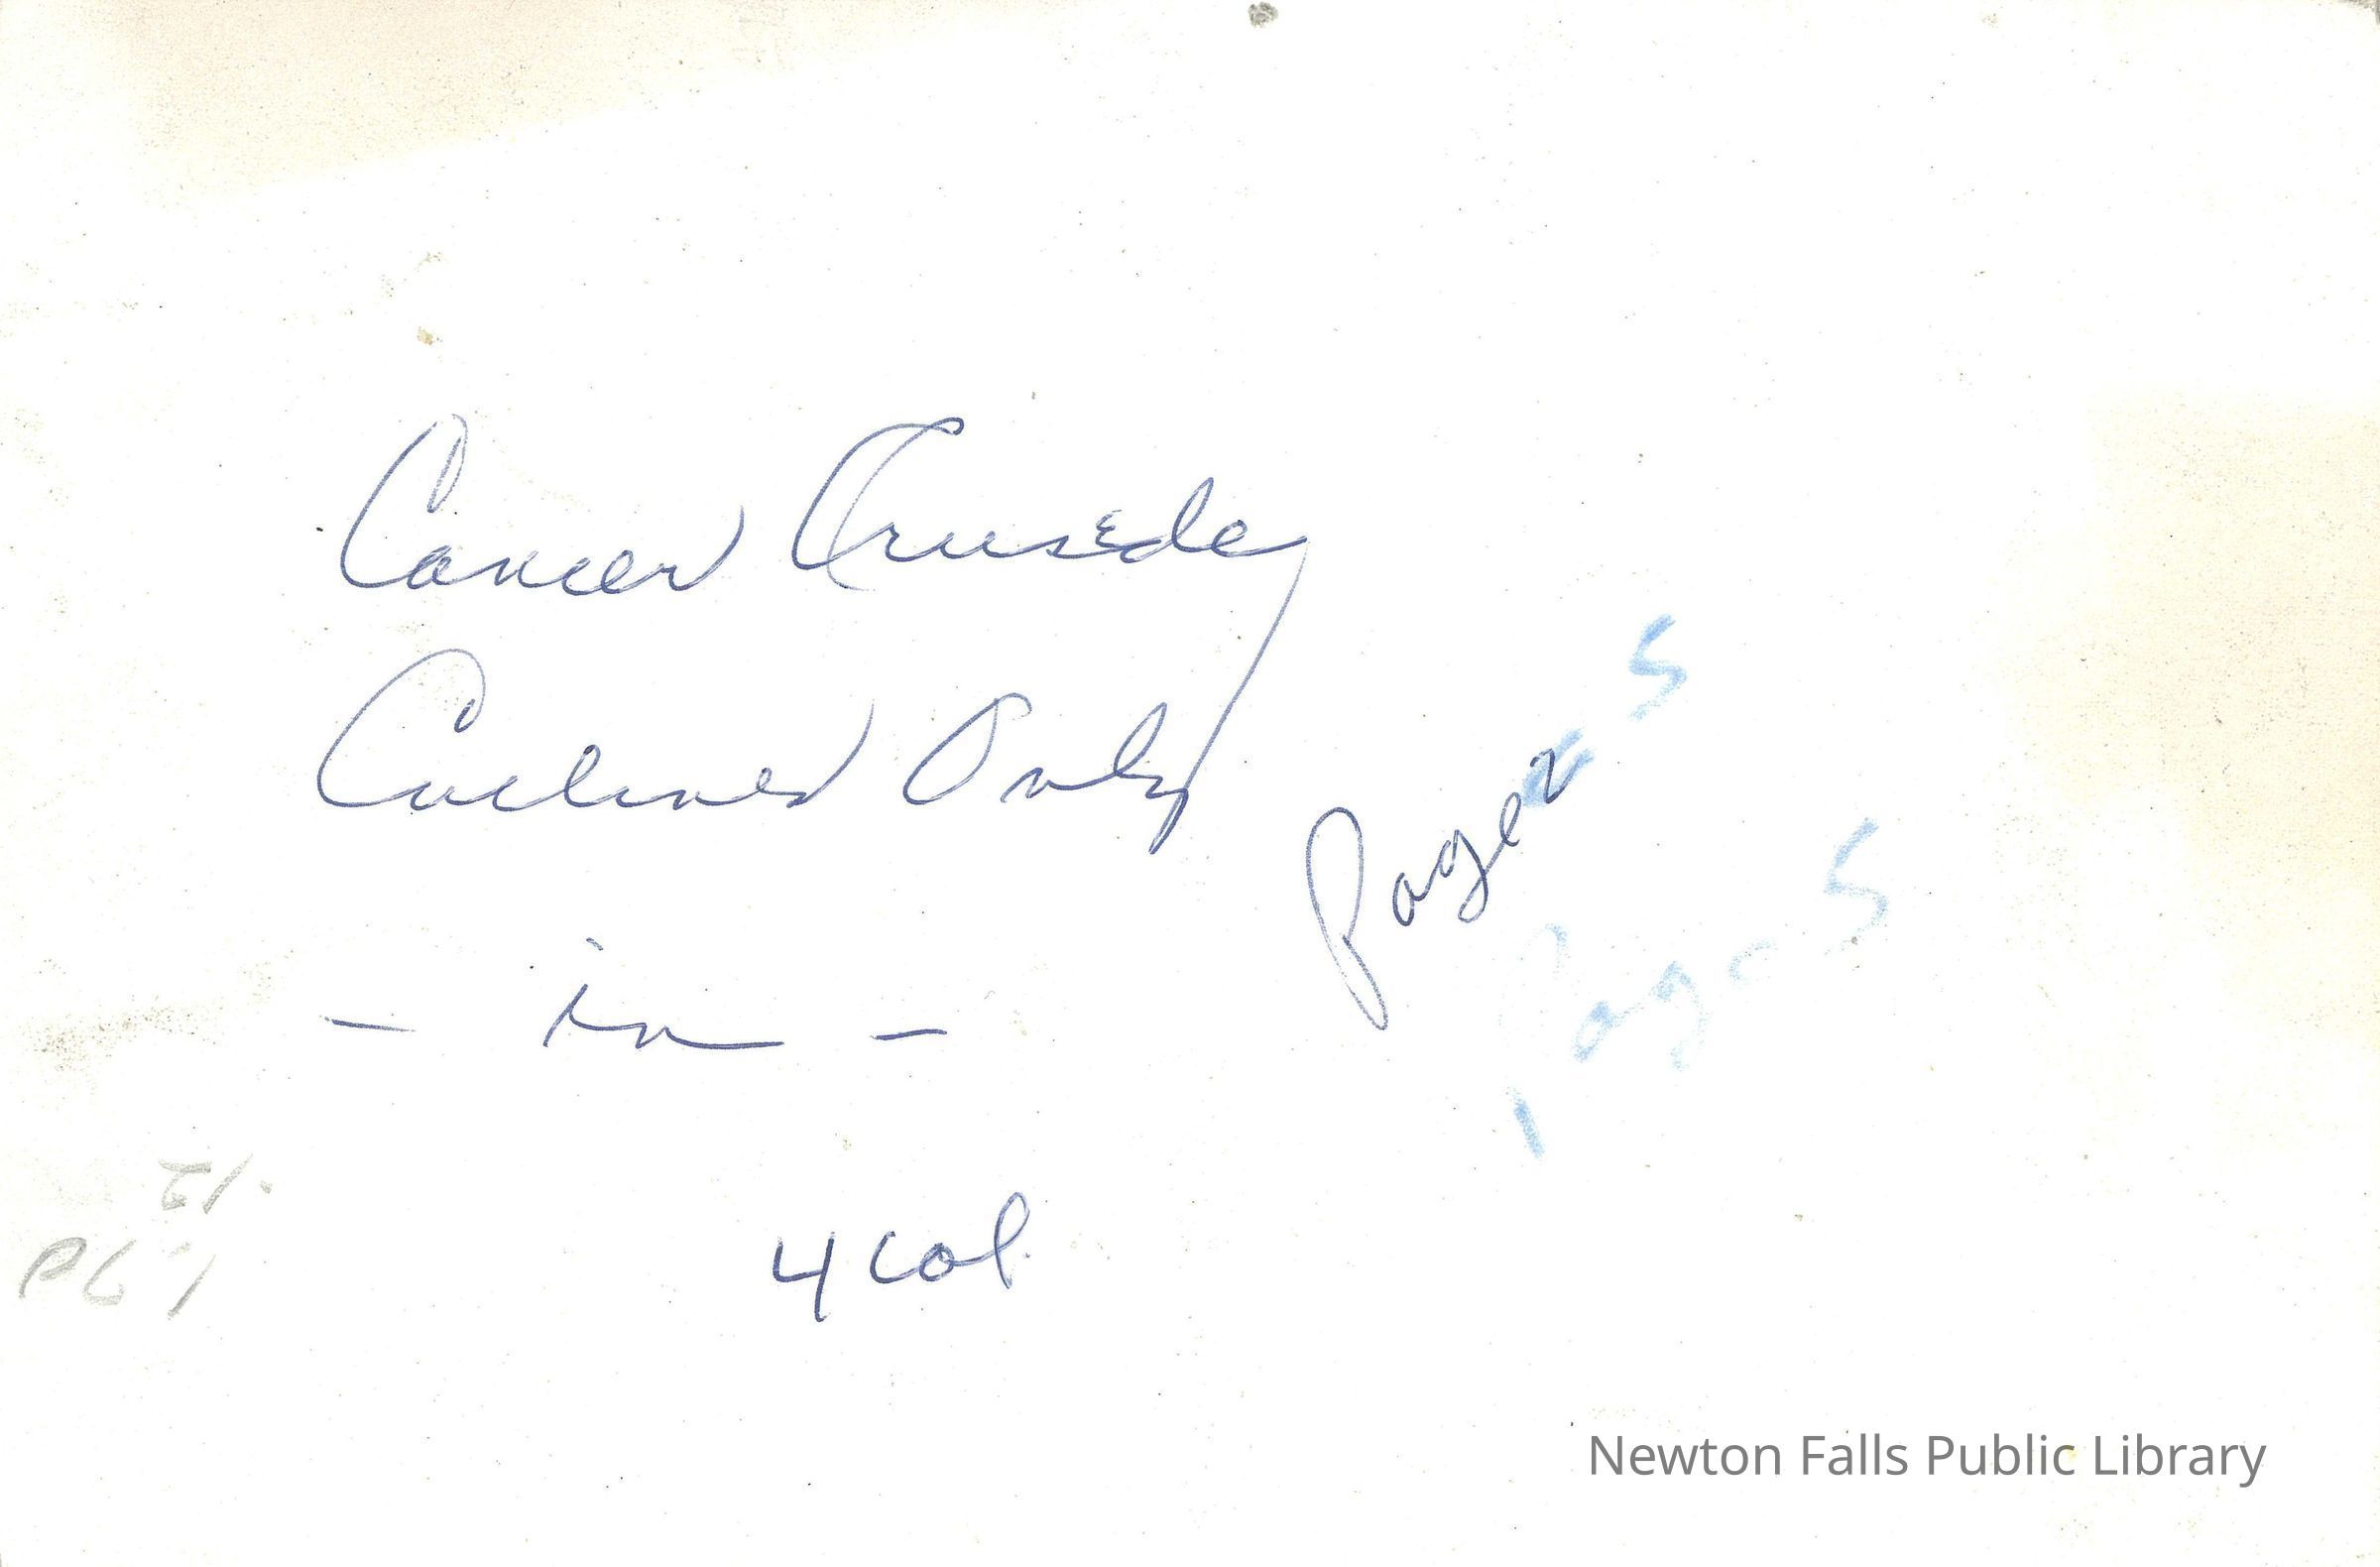 Cancer Crusade
Cutlines Only
Page 2 5
- in -
Page 5
4 col.
PG 1
Newton Falls Public Library